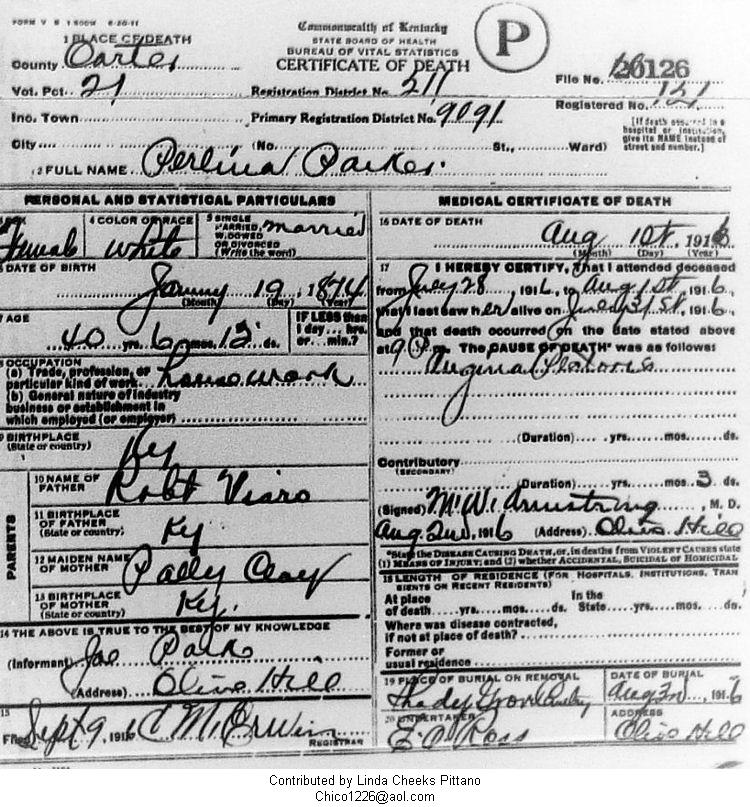 FORM V S 1 500M 6-20-11
Commonwealth of Kentucky
STATE BOARD OF HEALTH
BUREAU OF VITAL STATISTICS
CERTIFICATE OF DEATH
P
1 PLACE OF DEATH
County Carter
File No. 20126
Vot. Pct. 21 Registration District No. 211 Registered No. 121
Inc. Town Primary Registration District No. 9091
[If death occurred in a hospital or institution, give its NAME instead of street and number.]
City (No. St., Ward)
2 FULL NAME Perlina Parker.
PERSONAL AND STATISTICAL PARTICULARS
SEX Female
4 COLOR OR RACE White
5 SINGLE MARRIED, WIDOWED OR DIVORCED (Write the word) Married
6 DATE OF BIRTH
19, 1874
(Month) (Day) (Year)
7 AGE
40 yrs. 6 mos. 12 ds.
IF LESS than 1 day... hrs. or... min.?
8 OCCUPATION
(a) Trade, profession, or particular kind of work housework
(b) General nature of industry business or establishment in which employed (or employer)
9 BIRTHPLACE (State or country) Ky
PARENTS
10 NAME OF FATHER Robt
11 BIRTHPLACE OF FATHER (State or country) Ky
12 MAIDEN NAME OF MOTHER Clay
13 BIRTHPLACE OF MOTHER (State or country) Ky.
14 THE ABOVE IS TRUE TO THE BEST OF MY KNOWLEDGE
(Informant) Joe
(Address) Olive Hill
15
Filed Sept 9, 191 C M Erwin
REGISTRAR
MEDICAL CERTIFICATE OF DEATH
16 DATE OF DEATH
Aug 1st, 1916
(Month) (Day) (Year)
17 I HEREBY CERTIFY, That I attended deceased
from July 28, 1916, to Aug 1st, 1916,
that I last saw her alive on July 31st, 1916,
and that death occurred on the date stated above
at 9 P m. The CAUSE OF DEATH* was as follows:
Angina
(Duration) yrs. mos. ds.
Contributory
(SECONDARY)
(Duration) yrs. mos. 3 ds.
(Signed) M. W. Armstrong, M. D.
Aug 2nd, 1916 (Address) Olive Hill
*State the DISEASE CAUSING DEATH, or, in deaths from VIOLENT CAUSES state (1) MEANS OF INJURY; and (2) whether ACCIDENTAL, SUICIDAL OR HOMICIDAL
18 LENGTH OF RESIDENCE (FOR HOSPITALS, INSTITUTIONS, TRANSIENTS OR RECENT RESIDENTS)
At place of death yrs. mos. ds. In the State yrs. mos. ds.
Where was disease contracted, if not at place of death?
Former or usual residence
19 PLACE OF BURIAL OR REMOVAL Shady Grove
DATE OF BURIAL Aug 1916
20 UNDERTAKER Ross
ADDRESS Olive Hill
Contributed by Linda Cheeks Pittano
Chico1226@aol.com